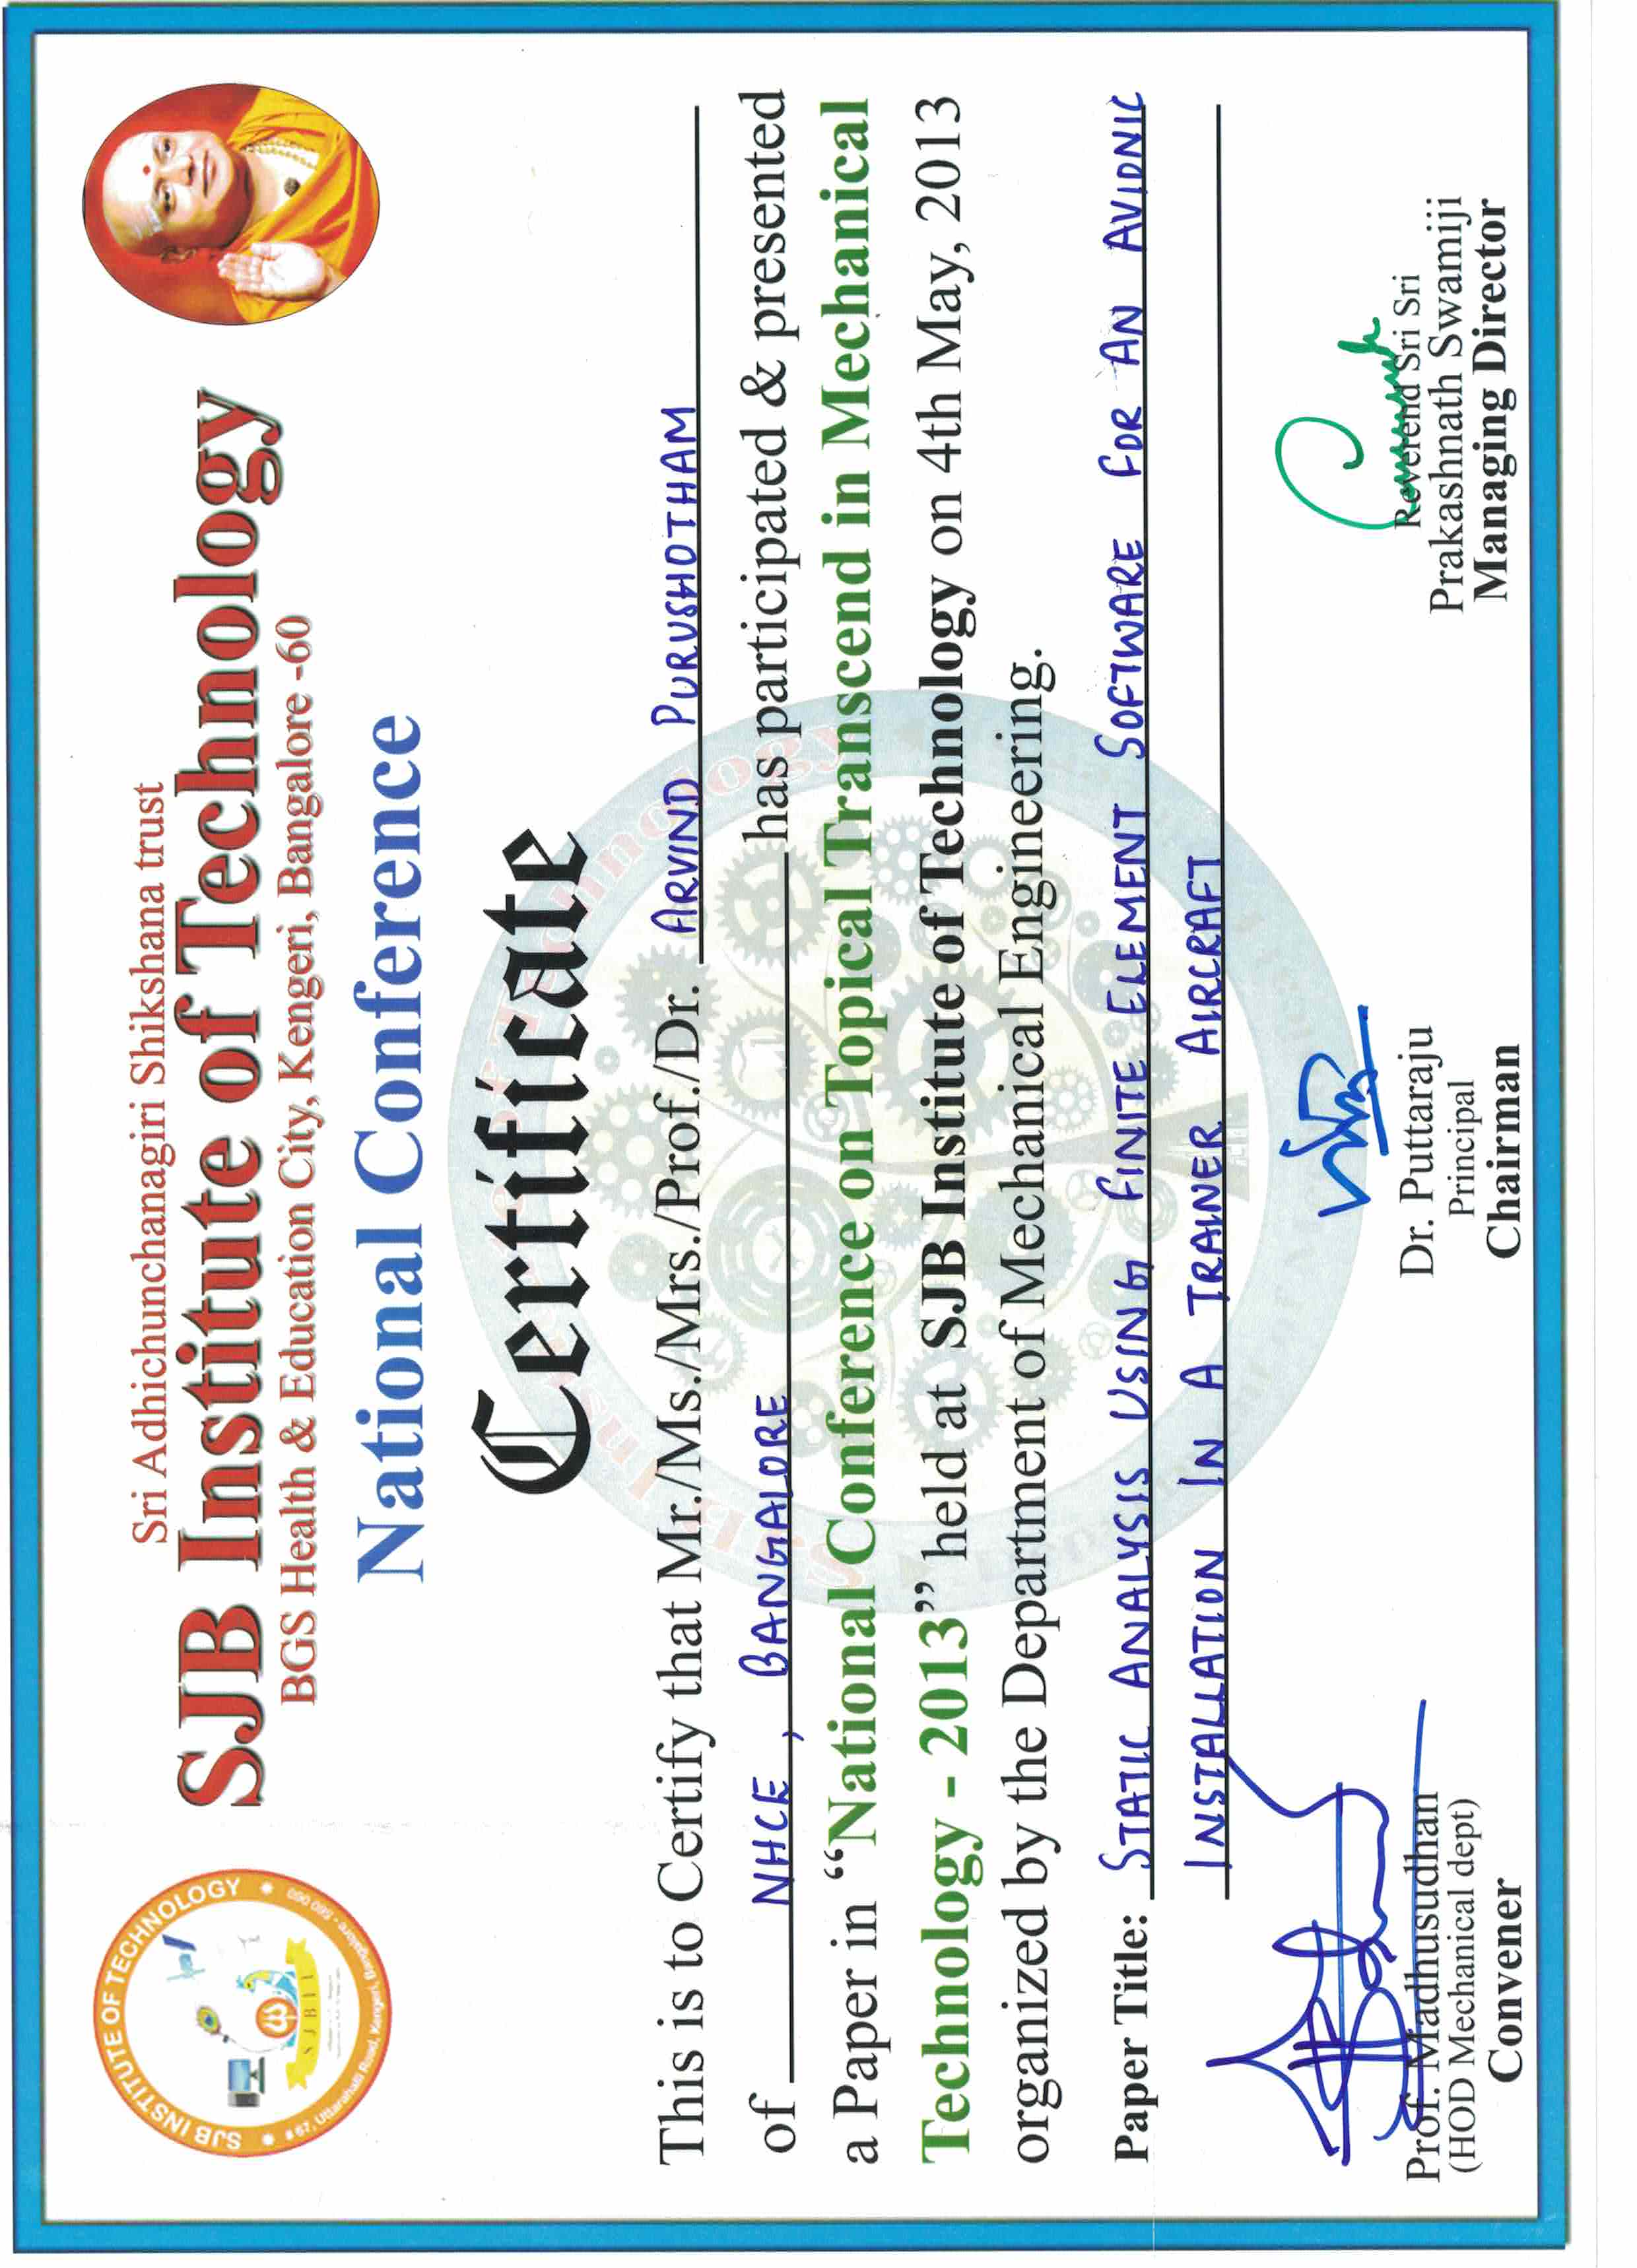 SJB INSTITUTE OF TECHNOLOGY
SJBIT
# 67, Uttarahalli Road, Kengeri, Bangalore - 560 060
Sri Adhichunchanagiri Shikshana trust
SJB Institute of Technology
BGS Health & Education City, Kengeri, Bangalore -60
National Conference
Certificate
This is to Certify that Mr./Ms./Mrs./Prof./Dr. ARVIND PURUSHOTHAM
of NHCE, BANGALORE has participated & presented
a Paper in “National Conference on Topical Transcend in Mechanical
Technology - 2013” held at SJB Institute of Technology on 4th May, 2013
organized by the Department of Mechanical Engineering.
Paper Title: STATIC ANALYSIS USING FINITE ELEMENT SOFTWARE FOR AN AVIONIC
INSTALLATION IN A TRAINER AIRCRAFT
Prof. Madhusudhan
(HOD Mechanical dept)
Convener
Dr. Puttaraju
Principal
Chairman
Reverend Sri Sri
Prakashnath Swamiji
Managing Director